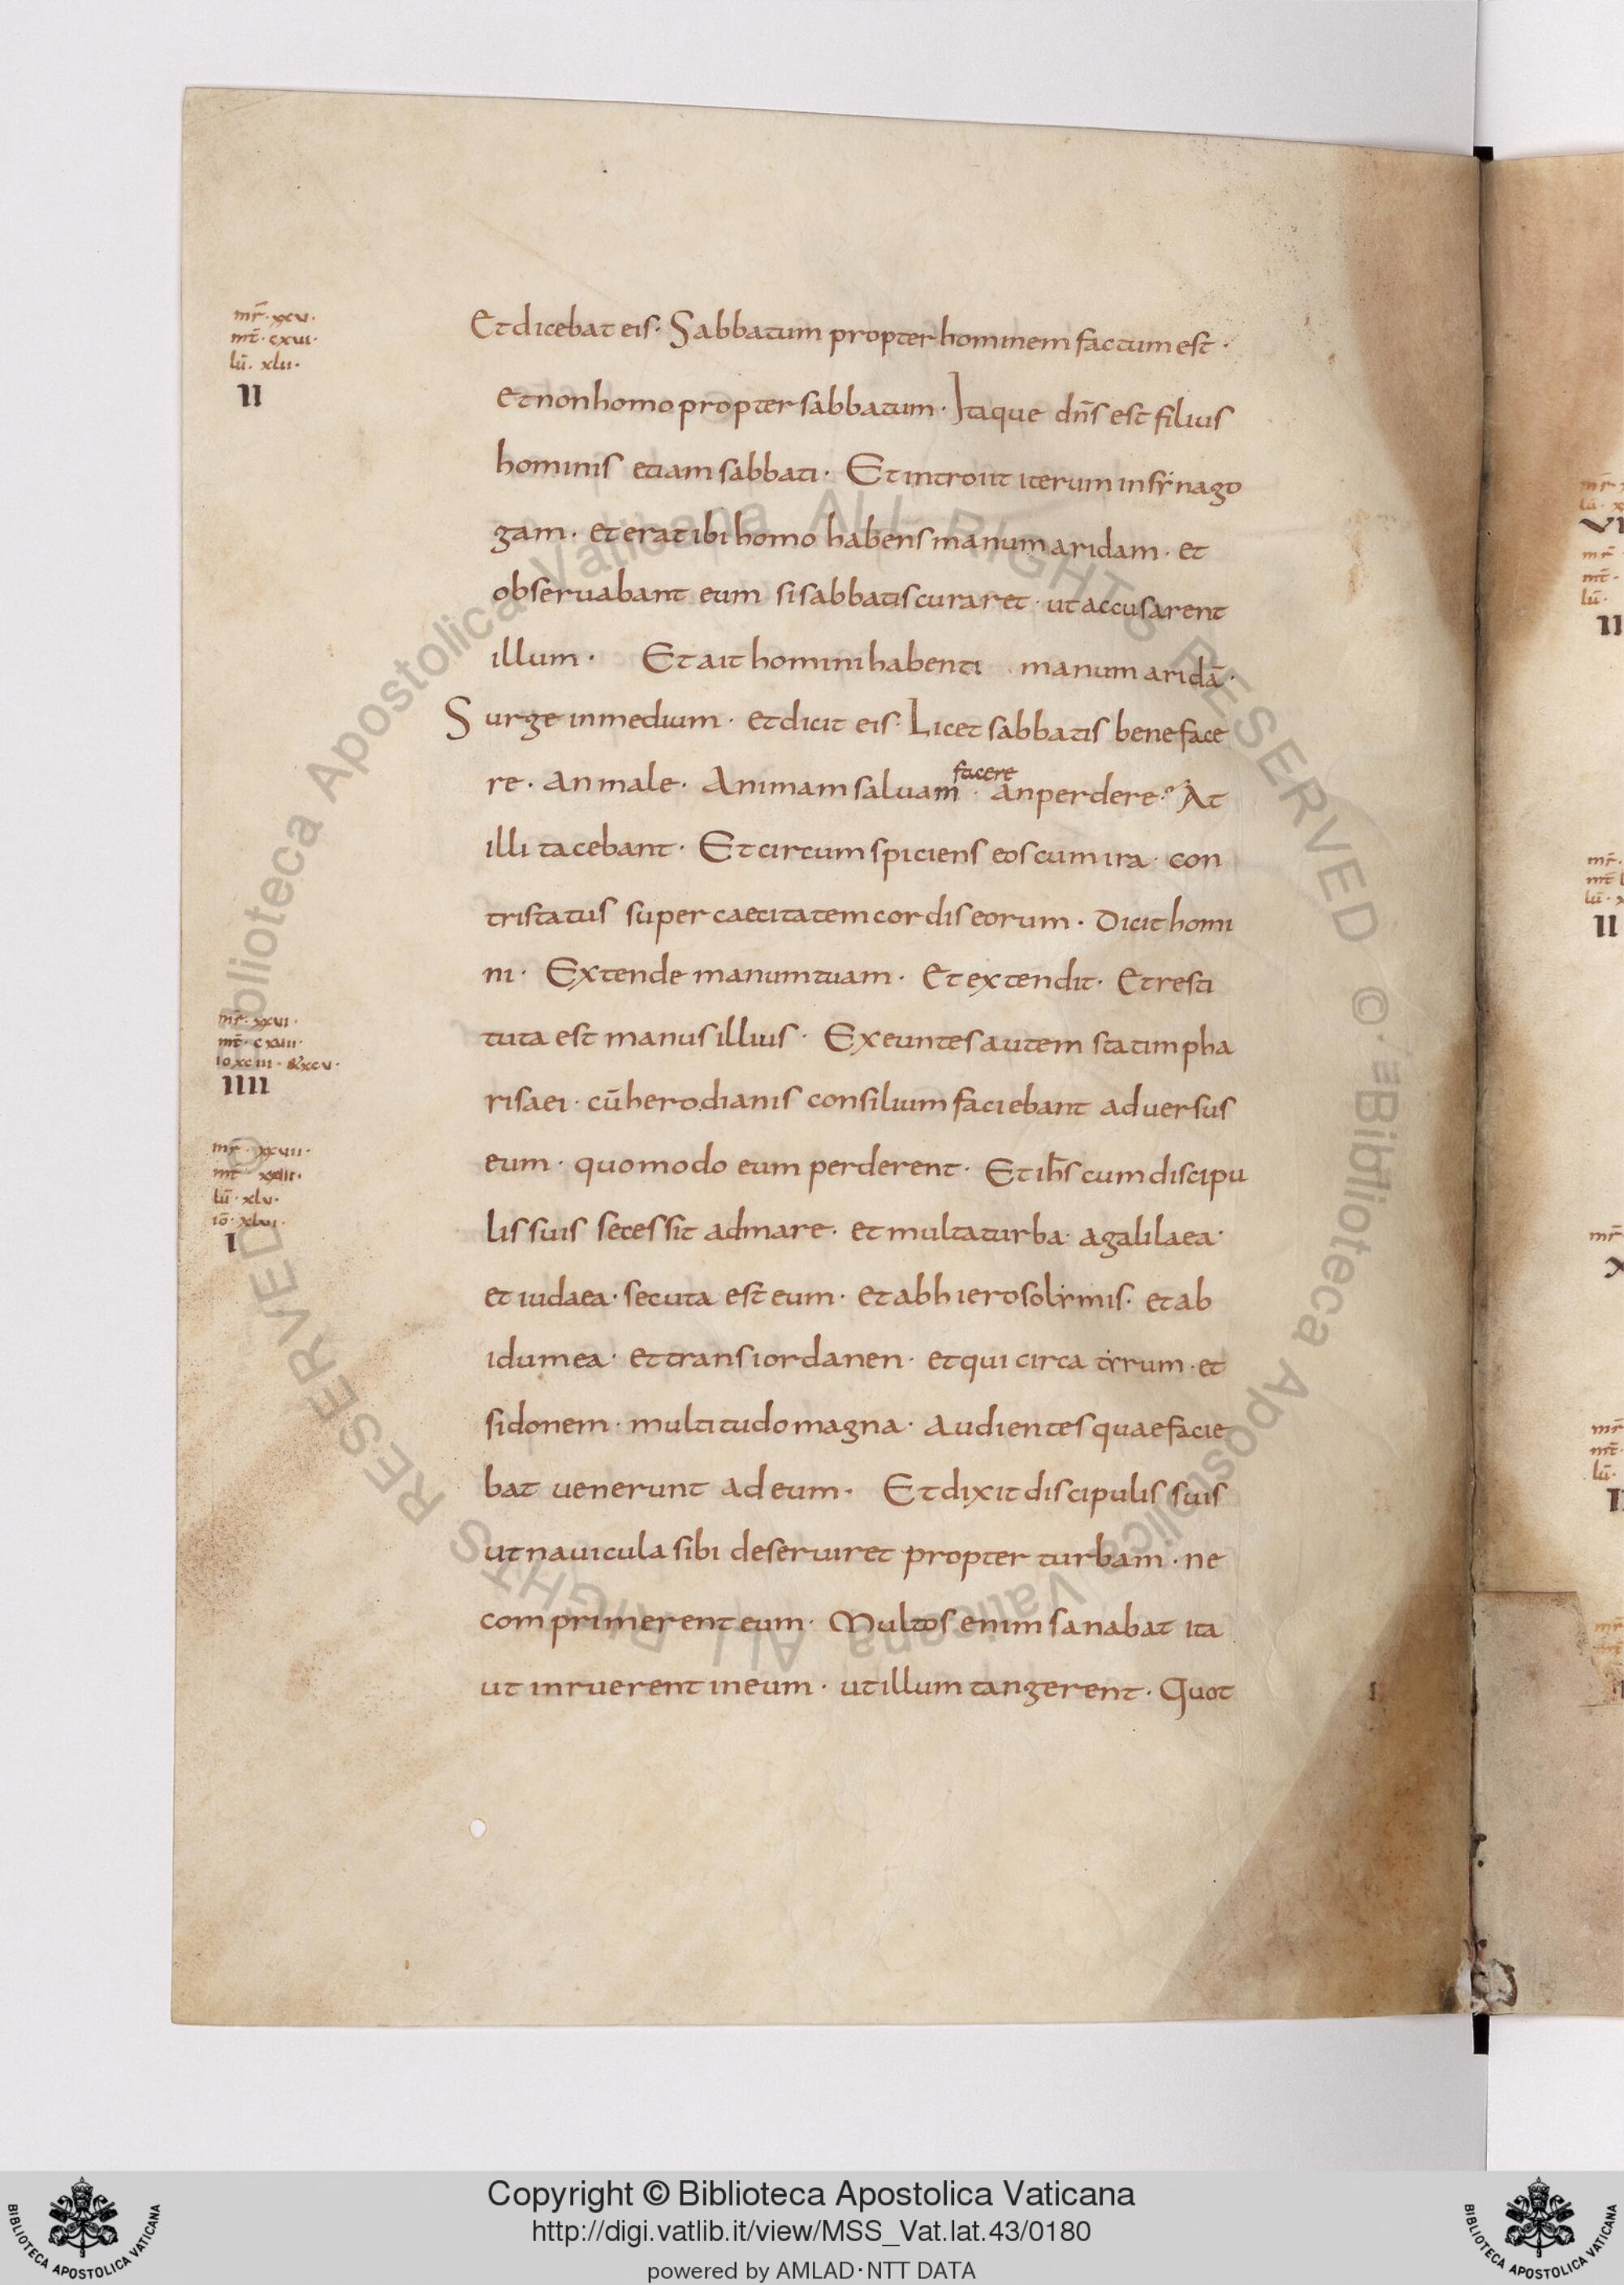 mr̄· xxv·
mt̄· cxvi·
lū· xlii·
II
Et dicebat eis· Sabbatum propter hominem factum est·
et non homo propter sabbatum· Itaque dn̄s est filius
hominis etiam sabbati· Et introiit iterum in synago
gam· et erat ibi homo habens manum aridam· et
observabant eum si sabbatis curaret· ut accusarent
illum· Et ait homini habenti manum aridā·
Surge in medium· et dicit eis· Licet sabbatis bene face
facere
re· an male· Animam salvam· an perdere? At
illi tacebant· Et circumspiciens eos cum ira· con
tristatus super caecitatem cordis eorum· Dicit homi
ni· Extende manum tuam· Et extendit· Et resti
tuta est manus illius· Exeuntes autem statim pha
mr̄· xxvi·
mt̄· cxviii·
io xciii· & xcv·
IIII
risaei· cū herodianis consilium faciebant adversus
eum· quomodo eum perderent· Et ih̄s cum discipu
mr̄· xxvii·
mt̄· xxiii·
lū· xlv·
iō· xlvi·
I
lis suis secessit ad mare· et multa turba· a galilaea·
et iudaea· secuta est eum· et ab hierosolymis· et ab
idumea· et trans iordanen· et qui circa tyrum· et
sidonem· multitudo magna· audientes quae facie
bat venerunt ad eum· Et dixit discipulis suis
ut navicula sibi deserviret propter turbam· ne
comprimerent eum· Multos enim sanabat ita
ut inruerent in eum· ut illum tangerent· Quot
Copyright © Biblioteca Apostolica Vaticana
http://digi.vatlib.it/view/MSS_Vat.lat.43/0180
powered by AMLAD·NTT DATA
BIBLIOTECA APOSTOLICA VATICANA
BIBLIOTECA APOSTOLICA VATICANA
© Biblioteca Apostolica Vaticana ALL RIGHTS RESERVED
© Biblioteca Apostolica Vaticana ALL RIGHTS RESERVED